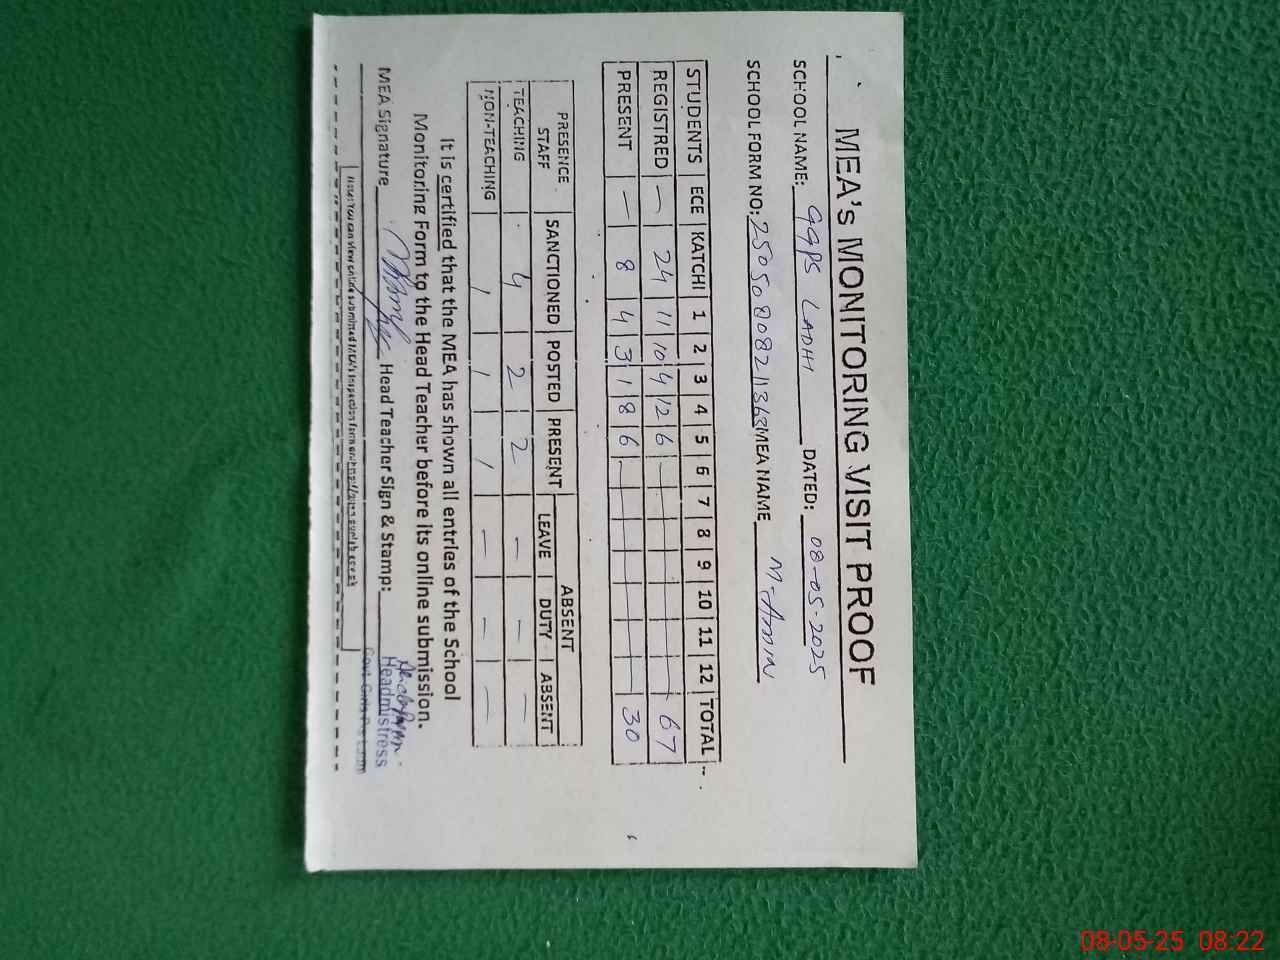 MEA's MONITORING VISIT PROOF
SCHOOL NAME: GGPS LADHI DATED: 08-05-2025
SCHOOL FORM NO: 2505080821136 MEA NAME M-Amin
STUDENTS ECE KATCHI 1 2 3 4 5 6 7 8 9 10 11 12 TOTAL
REGISTRED — 24 11 10 4 12 6 — 67
PRESENT — 8 4 3 1 8 6 — 30
PRESENCE STAFF SANCTIONED POSTED PRESENT ABSENT
LEAVE DUTY ABSENT
TEACHING 4 2 2 — — —
NON-TEACHING 1 1 1 — — —
It is certified that the MEA has shown all entries of the School
Monitoring Form to the Head Teacher before its online submission.
MEA Signature Head Teacher Sign & Stamp:
Headmistress
Govt. Girls
08-05-25 08:22